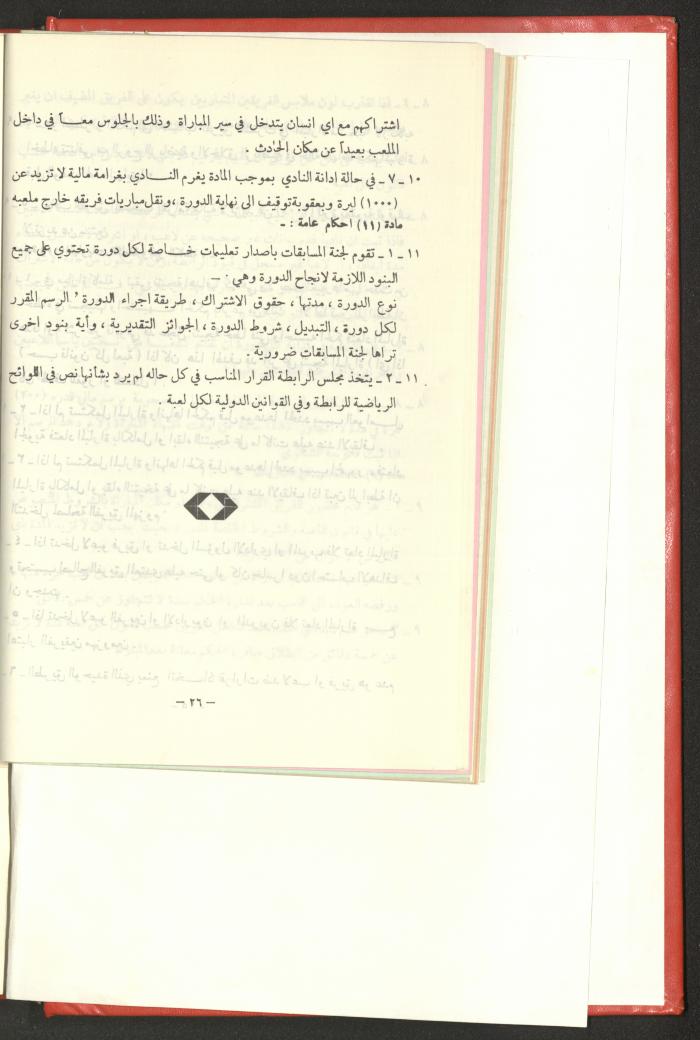 اشتراكهم مع اي انسان يتدخل في سير المباراة وذلك بالجلوس معاً في داخل
الملعب بعيداً عن مكان الحادث .
١٠ ـ ٧ ـ في حالة ادانة النادي بموجب المادة يغرم النادي بغرامة مالية لا تزيد عن
(١٠٠٠) ليرة وبعقوبة توقيف الى نهاية الدورة ، ونقل مباريات فريقه خارج ملعبه
مادة (١١) احكام عامة : ـ
١١ ـ ١ ـ تقوم لجنة المسابقات باصدار تعليمات خاصة لكل دورة تحتوي على جميع
البنود اللازمة لانجاح الدورة وهي . ـ
نوع الدورة ، مدتها ، حقوق الاشتراك ، طريقة اجراء الدورة ' الرسم المقرر
لكل دورة ، التبديل ، شروط الدورة ، الجوائز التقديرية ، وأية بنود اخرى
تراها لجنة المسابقات ضرورية .
١١ ـ ٢ ـ يتخذ مجلس الرابطة القرار المناسب في كل حاله لم يرد بشأنها نص في اللوائح
الرياضية للرابطة وفي القوانين الدولية لكل لعبة .
ـ ٢٦ ـ